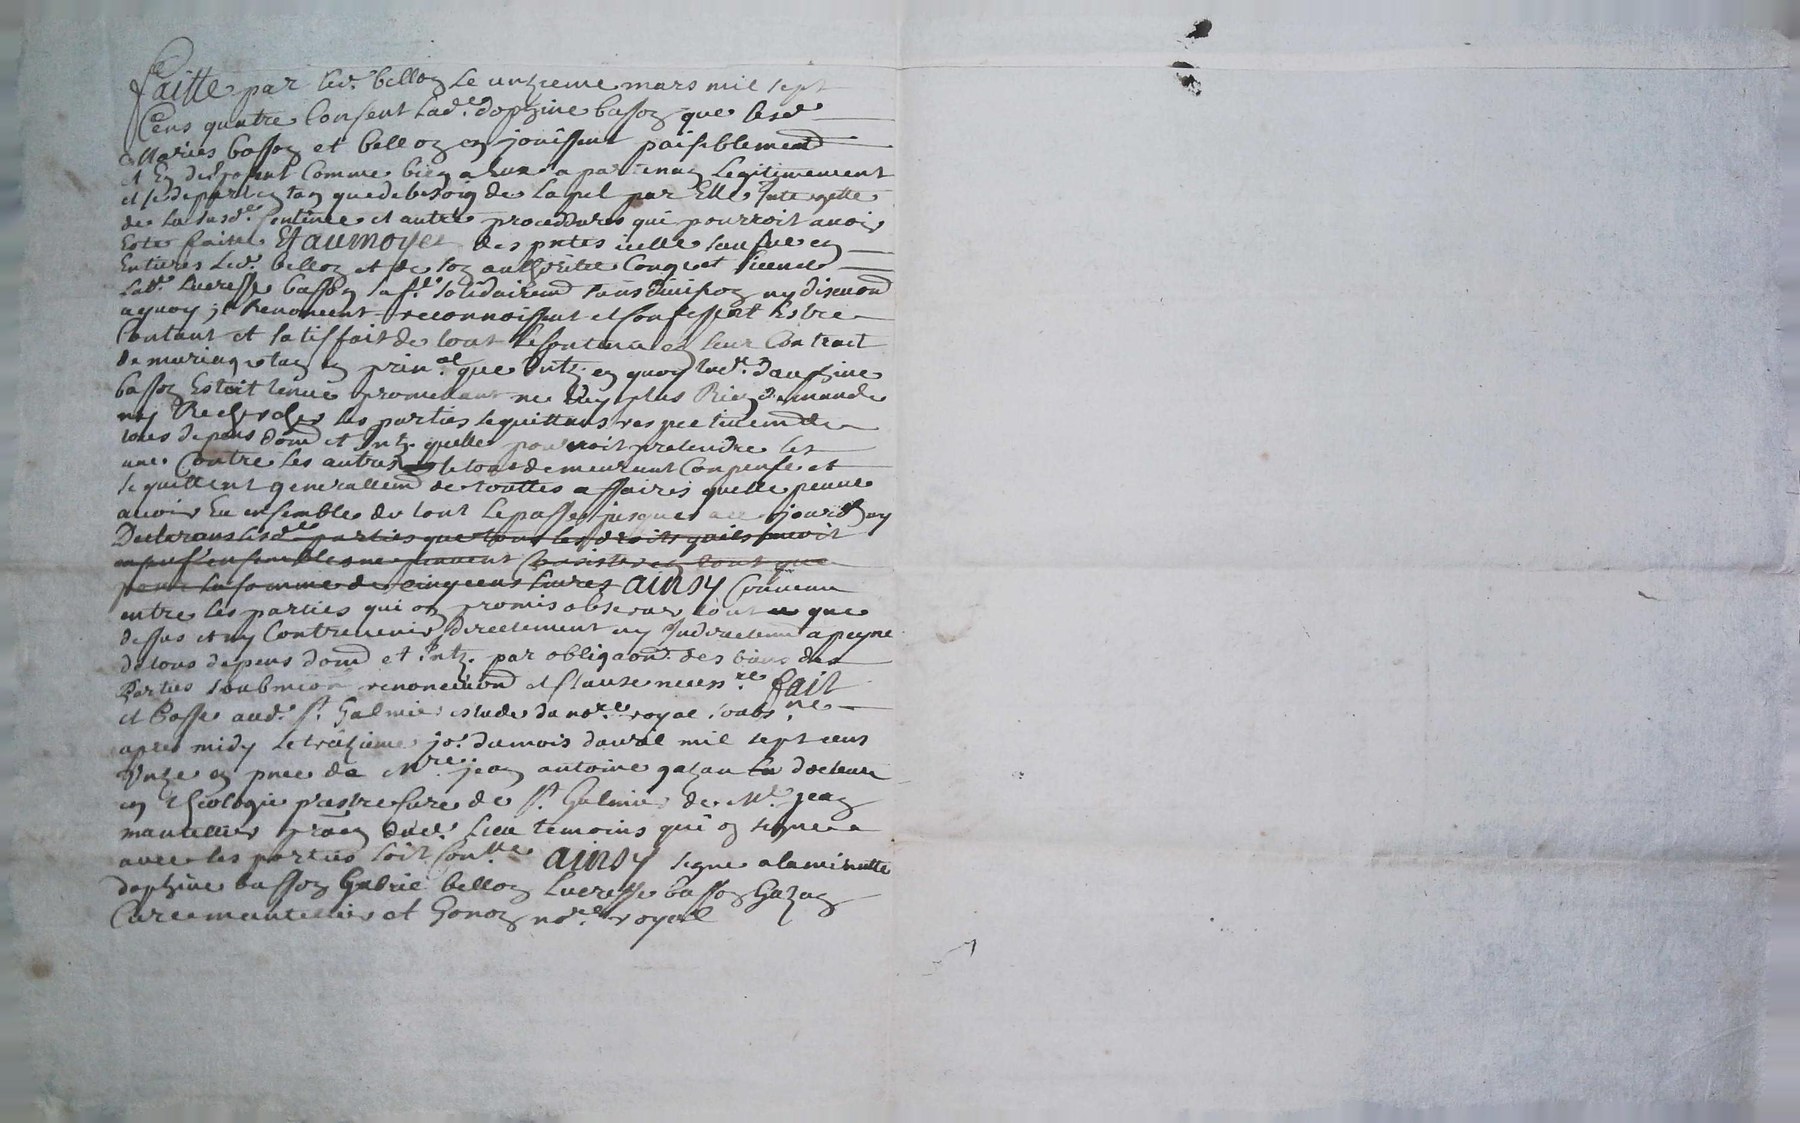 faitte par led.t bellon le unzieme mars mil sept
Cens quatre Consent lad.e dophine basson que lesd
Maries basson et bellon en jouissent paisiblement
et en disposent Comme bien a eux apartenan Legitimement
et se depart en tan que de besoin de lapel par Elle Inte gette
de la susd.e sentence et autre procedures qui pourroit avoir
Este faitte Et aumoyen des pntes icelle
Entieres led.t bellon et de son authorite Conge et licence
lad.e lucresse basson sa f.e solidairemt sans division ny discution
aquoy ils Renoncent reconnoissent et Confessent Estre
Contant et satisfait de tout le Contenu en leur Contract
de mariage tan en prin.al que Intz en quoy lad.e dauphine
basson Estoit tenue promettant ne luy plus Rien demander
ny Rechercher les parties se quittans respectivemt de
tous depens dom et Intz. quelle pourroit pretendre les
une Contre les autres le tout demeurant Conpense et
se quittent generallemt de touttes affaires quelle peuve
avoir Eu ensemble du tout le passe jusques a ce jourdhuy
Declarans lesd.es parties que tous les droits quils avoit
ensemble ne peuvent Consister en tout que
pour la somme de cinq cens livres AINSY Convenu
entre les parties qui on promis observer tout ce que
dessus et ny Contrevenir directement ny Indirectemt a peyne
de tous depens dom et Intz. par obligaon des biens des
Parties soubmion renonciaon et Clause necess.re fait
et Passe aud.t S.t Galmier estude du no.re royal soubs.ne
apres midy le traizieme jo.r du mois davril mil sept cens
Unze en pnce de M.re jean antoine gazan docteur
en theologie prestre Cure de S.t Galmier de M.e jean
mantellier dud.t lieu temoins qui on signe
avec les parties soit Con.lle AINSY signe a la minutte
dophine basson Gabriel bellon Lucresse basson Gazan
Cure mantellier et Gonon no.re royal